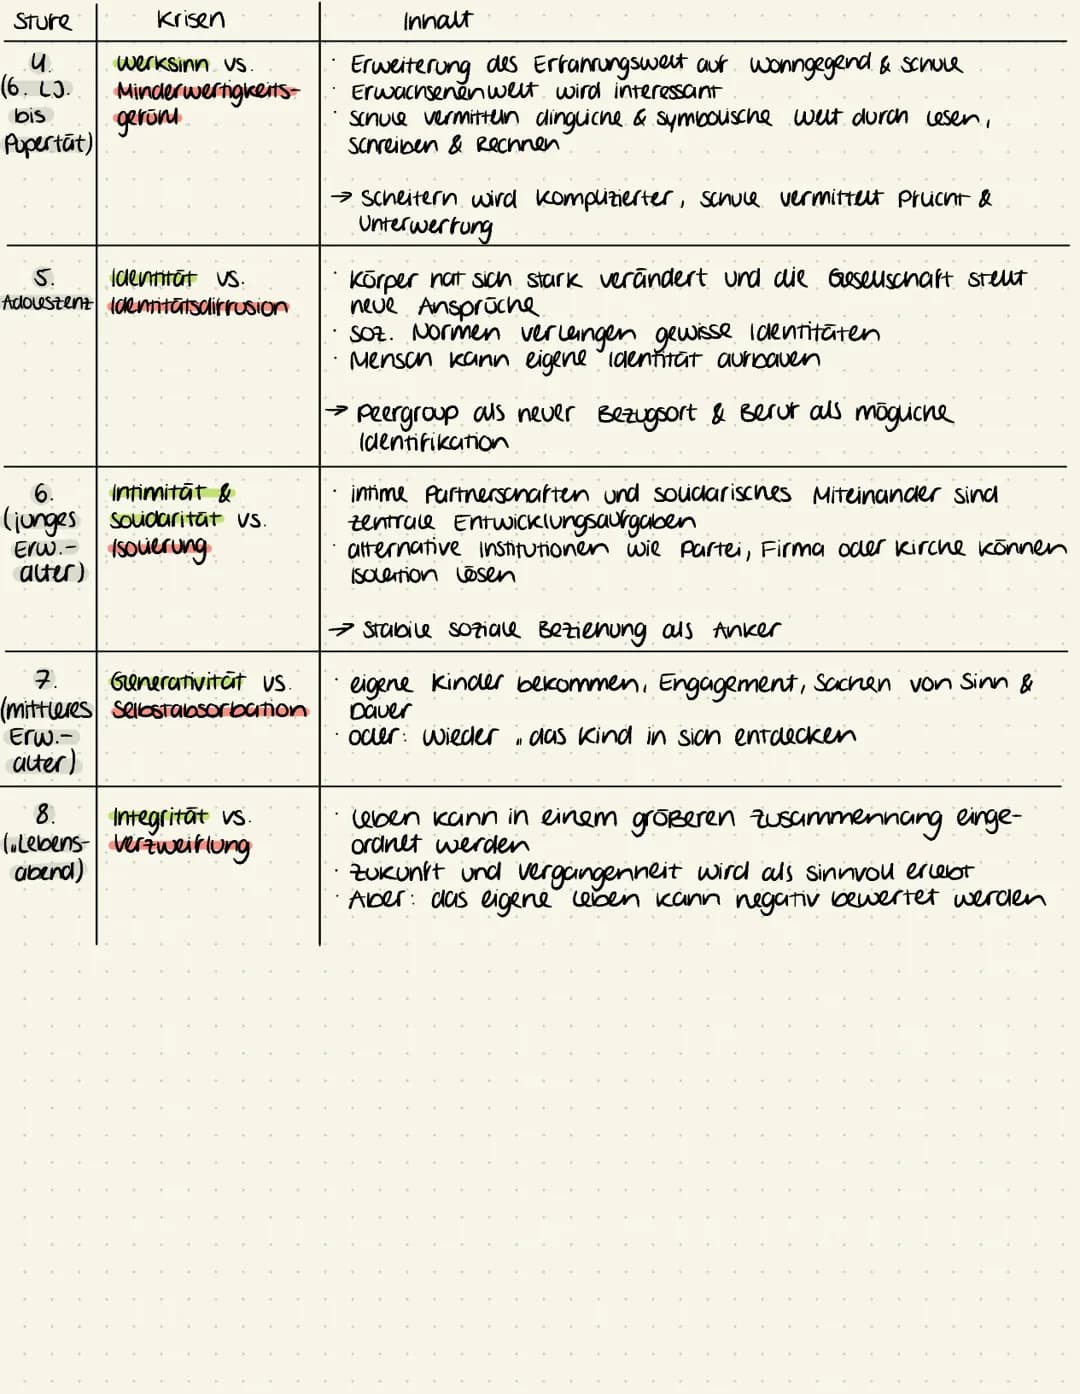 Stufe Krisen Inhalt
4. Werksinn vs. · Erweiterung des Erfahrungswelt auf Wohngegend & Schule
(6. LJ. Minderwertigkeits- · Erwachsenenwelt wird interessant
bis gefühl · Schule vermitteln dingliche & symbolische Welt durch Lesen,
Pupertät) Schreiben & Rechnen
→ Scheitern wird komplizierter, Schule vermittelt Pflicht &
Unterwerfung
5. Identität vs. · Körper hat sich stark verändert und die Gesellschaft stellt
Adoleszenz Identitätsdiffusion neue Ansprüche
· soz. Normen verlangen gewisse Identitäten
· Mensch kann eigene Identität aufbauen
→ Peergroup als neuer Bezugsort & Beruf als mögliche
Identifikation
6. Intimität & · intime Partnerschaften und solidarisches Miteinander sind
(junges Solidarität vs. zentrale Entwicklungsaufgaben
Erw.- Isolierung · alternative Institutionen wie Partei, Firma oder Kirche können
alter) Isolation lösen
→ Stabile soziale Beziehung als Anker
7. Generativität vs. · eigene Kinder bekommen, Engagement, Sachen von Sinn &
(mittleres Selbstabsorbation Dauer
Erw.- · oder: wieder „das Kind in sich entdecken
alter)
8. Integrität vs. · Leben kann in einem größeren Zusammenhang einge-
(„Lebens- Verzweiflung ordnet werden
abend) · Zukunft und Vergangenheit wird als sinnvoll erlebt
· Aber: das eigene Leben kann negativ bewertet werden